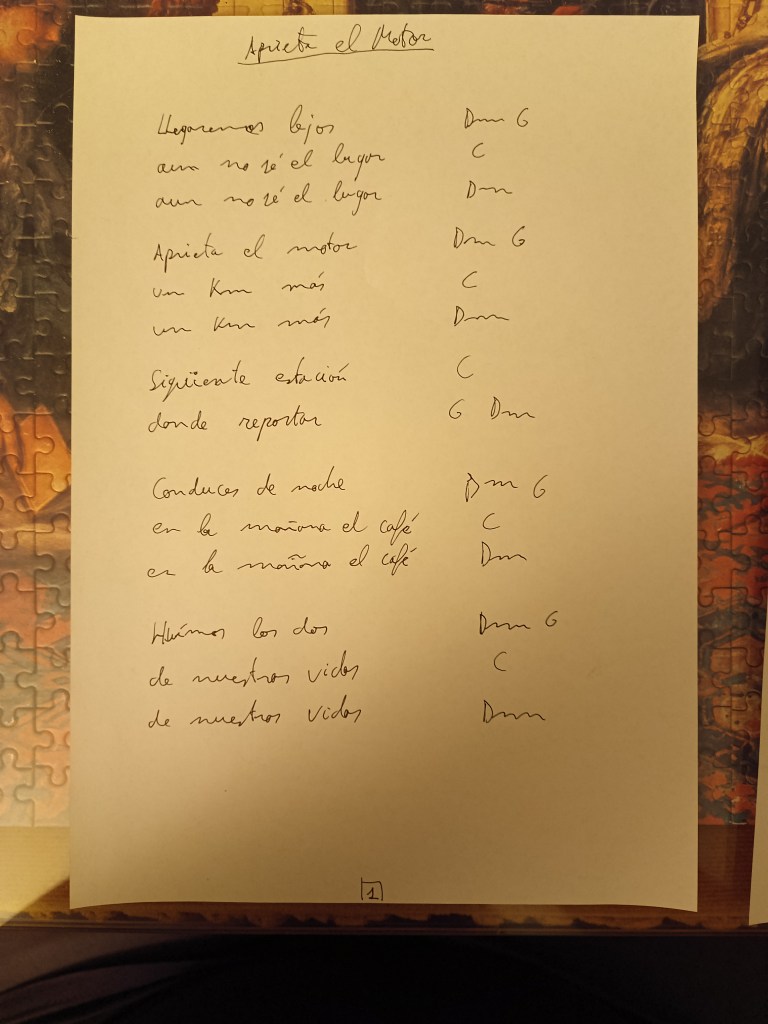 Aprieta el Motor
Llegaremos lejos Dm G
aun no sé el lugar C
aun no sé el lugar Dm
Aprieta el motor Dm G
un Km más C
un Km más Dm
Sigüiente estación C
donde repostar G Dm
Conduces de noche Dm G
en la mañana el café C
en la mañana el café Dm
Huímos los dos Dm G
de nuestras vidas C
de nuestras vidas Dm
1